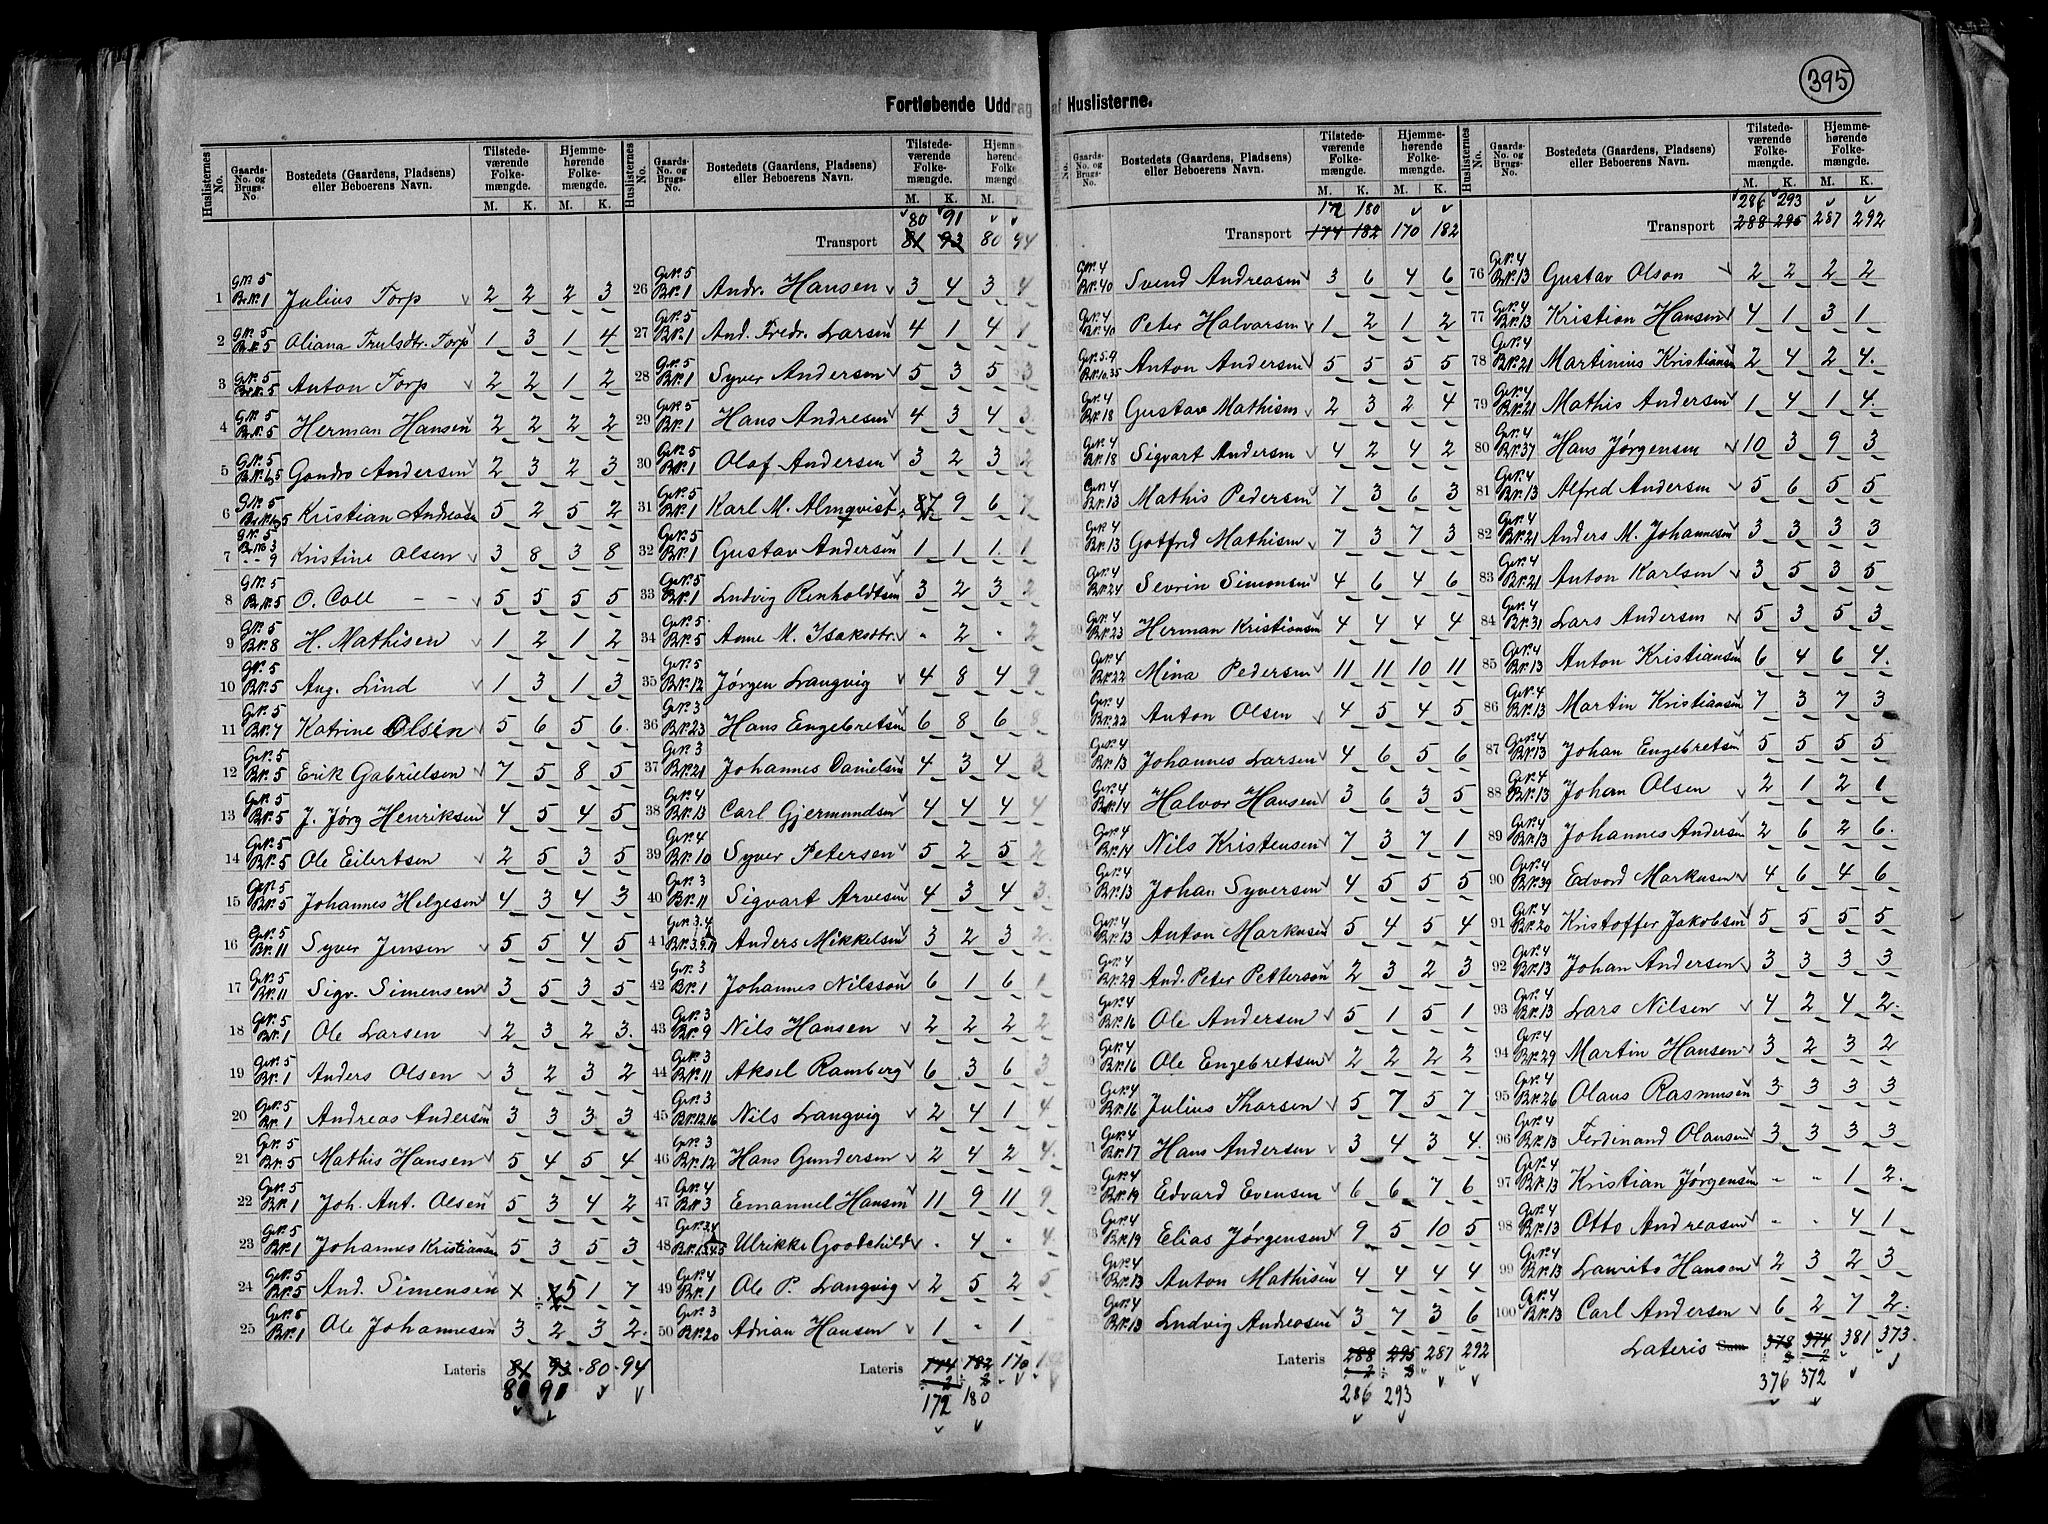 395
Fortløbende Uddrag af Huslisterne.
Huslisternes No. Gaards-No. og Brugs-No. Bostedets (Gaardens, Pladsens) eller Beboerens Navn. Tilstedeværende Folkemængde. M. K. Hjemmehørende Folkemængde. M. K.
1 GNr. 5 BrNr. 1 Julius Torp 2 2 2 3
2 GNr. 5 BrNr. 5 Oliana Trulsdtr. Torp 1 3 1 4
3 GNr. 5 BrNr. 5 Anton Torp 2 2 1 2
4 GNr. 5 BrNr. 5 Herman Hansen 2 2 2 2
5 GNr. 5 Andersen 2 3 2 3
6 GNr. 5 Kristian Andreasen 5 2 5 2
7 GNr. 5 BrNo 3 " " 9 Kristine Olsen 3 8 3 8
8 GNr. 5 BrNr. 5 O. Coll - - 5 5 5 5
9 GNr. 5 BrNr. 8 H. Mathisen 1 2 1 2
10 GNr. 5 BrNr. 5 Aug. Lind 1 3 1 3
11 GNr. 5 BrNr. 7 Katrine Olsen 5 6 5 6.
12 GNr. 5 BrNr. 5 Erik Gabrielsen 7 5 8 5
13 GNr. 5 BrNr. 5 J. Jørg Henriksen 4 5 4 5
14 GNr. 5 BrNr. 5 Ole Eilertsen 2 5 3 5
15 GNr. 5 BrNr. 5 Johannes Helgesen 4 3 4 3
16 GNr. 5 BrNr. 11 Syver Jensen 5 5 4 5
17 GNr. 5 BrNr. 11 Sigv. Simensen 3 5 3 5
18 GNr. 5 BrNr. 1 Ole Larsen 2 3 2 3.
19 GNr. 5 BrNr. 1 Anders Olsen 3 2 3 2
20 GNr. 5 BrNr. 1 Andreas Andersen 3 3 3 3
21 GNr. 5 BrNr. 5 Mathis Hansen 5 4 5 4
22 GNr. 5 BrNr. 1 Joh. Ant. Olsen 5 3 4 2
23 GNr. 5 BrNr. 1 Johannes Kristiansen 5 3 5 3
24 GNr. 5 BrNr. 5 And. Simensen x 5 1 7
25 GNr. 5 BrNr. 1 Ole Johannesen 3 2 3 2.
Lateris 81 93 80 94
80 91
Huslisternes No. Gaards-No. og Brugs-No. Bostedets (Gaardens, Pladsens) eller Beboerens Navn. Tilstedeværende Folkemængde. M. K. Hjemmehørende Folkemængde. M. K.
80 91
Transport 81 93 80 94
26 GNr. 5 BrNr. 1 Andr. Hansen 3 4 3 4
27 GNr. 5 BrNr. 1 And. Fredr. Larsen 4 1 4 1
28 GNr. 5 BrNr. 1 Syver Andersen 5 3 5 3
29 GNr. 5 BrNr. 1 Hans Andresen 4 3 4 3
30 GNr. 5 BrNr. 1 Olaf Andersen 3 2 3 2
31 GNr. 5 BrNr. 1 Karl M. Almqvist 87 9 6 7
32 GNr. 5 BrNr. 1 Gustav Andersen 1 1 1 1
33 GNr. 5 BrNr. 1 Ludvig Renholdtsen 3 2 3 2
34 GNr. 5 BrNr. 5 Anne M. Isaksdtr. - 2 - 2
35 GNr. 5 BrNr. 12 Jørgen Langvig 4 8 4 9
36 GNr. 3 BrNr. 23 Hans Engebretsen 6 8 6 8
37 GNr. 3 BrNr. 21 Johannes Danielsen 4 3 4 3
38 GNr. 4 BrNr. 13 Carl Gjermundsen 4 4 4 4
39 GNr. 4 BrNr. 10 Syver Petersen 5 2 5 2
40 GNr. 3 BrNr. 11 Sigvart Arvesen 4 3 4 3
41 GNr. 3.4 BrNr. 3.9.11 Anders Mikkelsen 3 2 3 2
42 GNr. 3 BrNr. 1 Johannes Nilsson 6 1 6 1
43 GNr. 3 BrNr. 9 Nils Hansen 2 2 2 2
44 GNr. 3 BrNr. 11 Aksel Ramberg 6 3 6 3
45 GNr. 3 BrNr. 12.16 Nils Langvig 2 4 1 4
46 GNr. 3 BrNr. 12 Hans Gundersen 2 4 2 4.
47 GNr. 4 BrNr. 3 Emanuel Hansen 11 9 11 9
48 GNr. 3.4 Ulrikke Goodchild - 4 - 4.
49 GNr. 4 BrNr. 1 Ole P. Langvig 2 5 2 5
50 GNr. 3 BrNr. 20 Adrian Hansen 1 - 1 -
Lateris 174 182 170
2 2
172 180
Gaards-No. og Brugs-No. Bostedets (Gaardens, Pladsens) eller Beboerens Navn. Tilstedeværende Folkemængde. M. K. Hjemmehørende Folkemængde. M. K.
172 180
Transport 174 182 170 182
GNr. 4 BrNr. 40 Svend Andreasen 3 6 4 6
GNr. 4 BrNr. 40 Peter Halvorsen 1 2 1 2
GNr. 5.9 BrNr. 10.35 Anton Andersen 5 5 5 5
GNr. 4 BrNr. 18 Gustav Mathisen 2 3 2 4
GNr. 4 BrNr. 18 Sigvart Andersen 4 2 4 2
GNr. 4 BrNr. 13 Mathis Pedersen 7 3 6 3
GNr. 4 BrNr. 13 Gotfred Mathisen 7 3 7 3
GNr. 4 BrNr. 24 Sevrin Simonsen 4 6 4 6
GNr. 4 BrNr. 23 Herman Kristiansen 4 4 4 4
GNr. 4 BrNr. 22 Mina Pedersen 11 11 10 11
GNr. 4 BrNr. 22 Anton Olsen 4 5 4 5
GNr. 4 BrNr. 13 Johannes Larsen 4 6 5 6
GNr. 4 BrNr. 14 Halvor Hansen 3 6 3 5
GNr. 4 BrNr. 14 Nils Kristensen 7 3 7 1
GNr. 4 BrNr. 13 Johan Syversen 4 5 5 5
GNr. 4 BrNr. 13 Anton Markusen 5 4 5 4
GNr. 4 BrNr. 29 And. Peter Petterson 2 3 2 3
GNr. 4 BrNr. 16 Ole Andersen 5 1 5 1
GNr. 4 BrNr. 16 Ole Engebretsen 2 2 2 2
GNr. 4 BrNr. 16 Julius Thorsen 5 7 5 7
GNr. 4 BrNr. 17 Hans Andersen 3 4 3 4.
GNr. 4 BrNr. 19 Edvard Evensen 6 6 7 6
GNr. 4 BrNr. 19 Elias Jørgensen 9 5 10 5
GNr. 4 BrNr. 13 Anton Mathisen 4 4 4 4
GNr. 4 BrNr. 13 Ludvig Andreasen 3 7 3 6
Lateris 288 295 287 292
2
286 293
Huslisternes No. Gaards-No. og Brugs-No. Bostedets (Gaardens, Pladsens) eller Beboerens Navn. Tilstedeværende Folkemængde. M. K. Hjemmehørende Folkemængde. M. K.
286 293
Transport 288 295 287 292
76 GNr. 4 BrNr. 13 Gustav Olson 2 2 2 2
77 GNr. 4 BrNr. 13 Kristian Hansen 4 1 3 1
78 GNr. 4 BrNr. 21 Martinius Kristiansen 2 4 2 4.
79 GNr. 4 BrNr. 21 Mathis Andersen 1 4 1 4.
80 GNr. 4 BrNr. 37 Hans Jørgensen 10 3 9 3
81 GNr. 4 BrNr. 13 Alfred Andersen 5 6 5 5
82 GNr. 4 BrNr. 21 Anders M. Johannesen 3 3 3 3
83 GNr. 4 BrNr. 21 Anton Karlsen 3 5 3 5
84 GNr. 4 BrNr. 31 Lars Andersen 5 3 5 3
85 GNr. 4 BrNr. 13 Anton Kristiansen 6 4 6 4.
86 GNr. 4 BrNr. 13 Martin Kristiansen 7 3 7 3
87 GNr. 4 BrNr. 13 Johan Engebretsen 5 5 5 5
88 GNr. 4 BrNr. 13 Johan Olsen 2 1 2 1
89 GNr. 4 BrNr. 13 Johannes Andersen 2 6 2 6.
90 GNr. 4 BrNr. 39 Edvard Markusen 4 6 4 6
91 GNr. 4 BrNr. 20 Kristoffer Jakobsen 5 5 5 5
92 GNr. 4 BrNr. 13 Johan Andersen 3 3 3 3
93 GNr. 4 BrNr. 13 Lars Nilsen 4 2 4 2.
94 GNr. 4 BrNr. 29 Martin Hansen 3 2 3 2
95 GNr. 4 BrNr. 26 Olaus Rasmusen 3 3 3 3
96 GNr. 4 BrNr. 13 Ferdinand Olausen 3 3 3 3
97 GNr. 4 BrNr. 13 Kristian Jørgensen - - 1 2.
98 GNr. 4 BrNr. 13 Otto Andreasen - - 4 1
99 GNr. 4 BrNr. 13 Laurits Hansen 2 3 2 3
100 GNr. 4 BrNr. 13 Carl Andersen 6 2 7 2.
Lateris Sum 378 374 381 373.
2
376 372